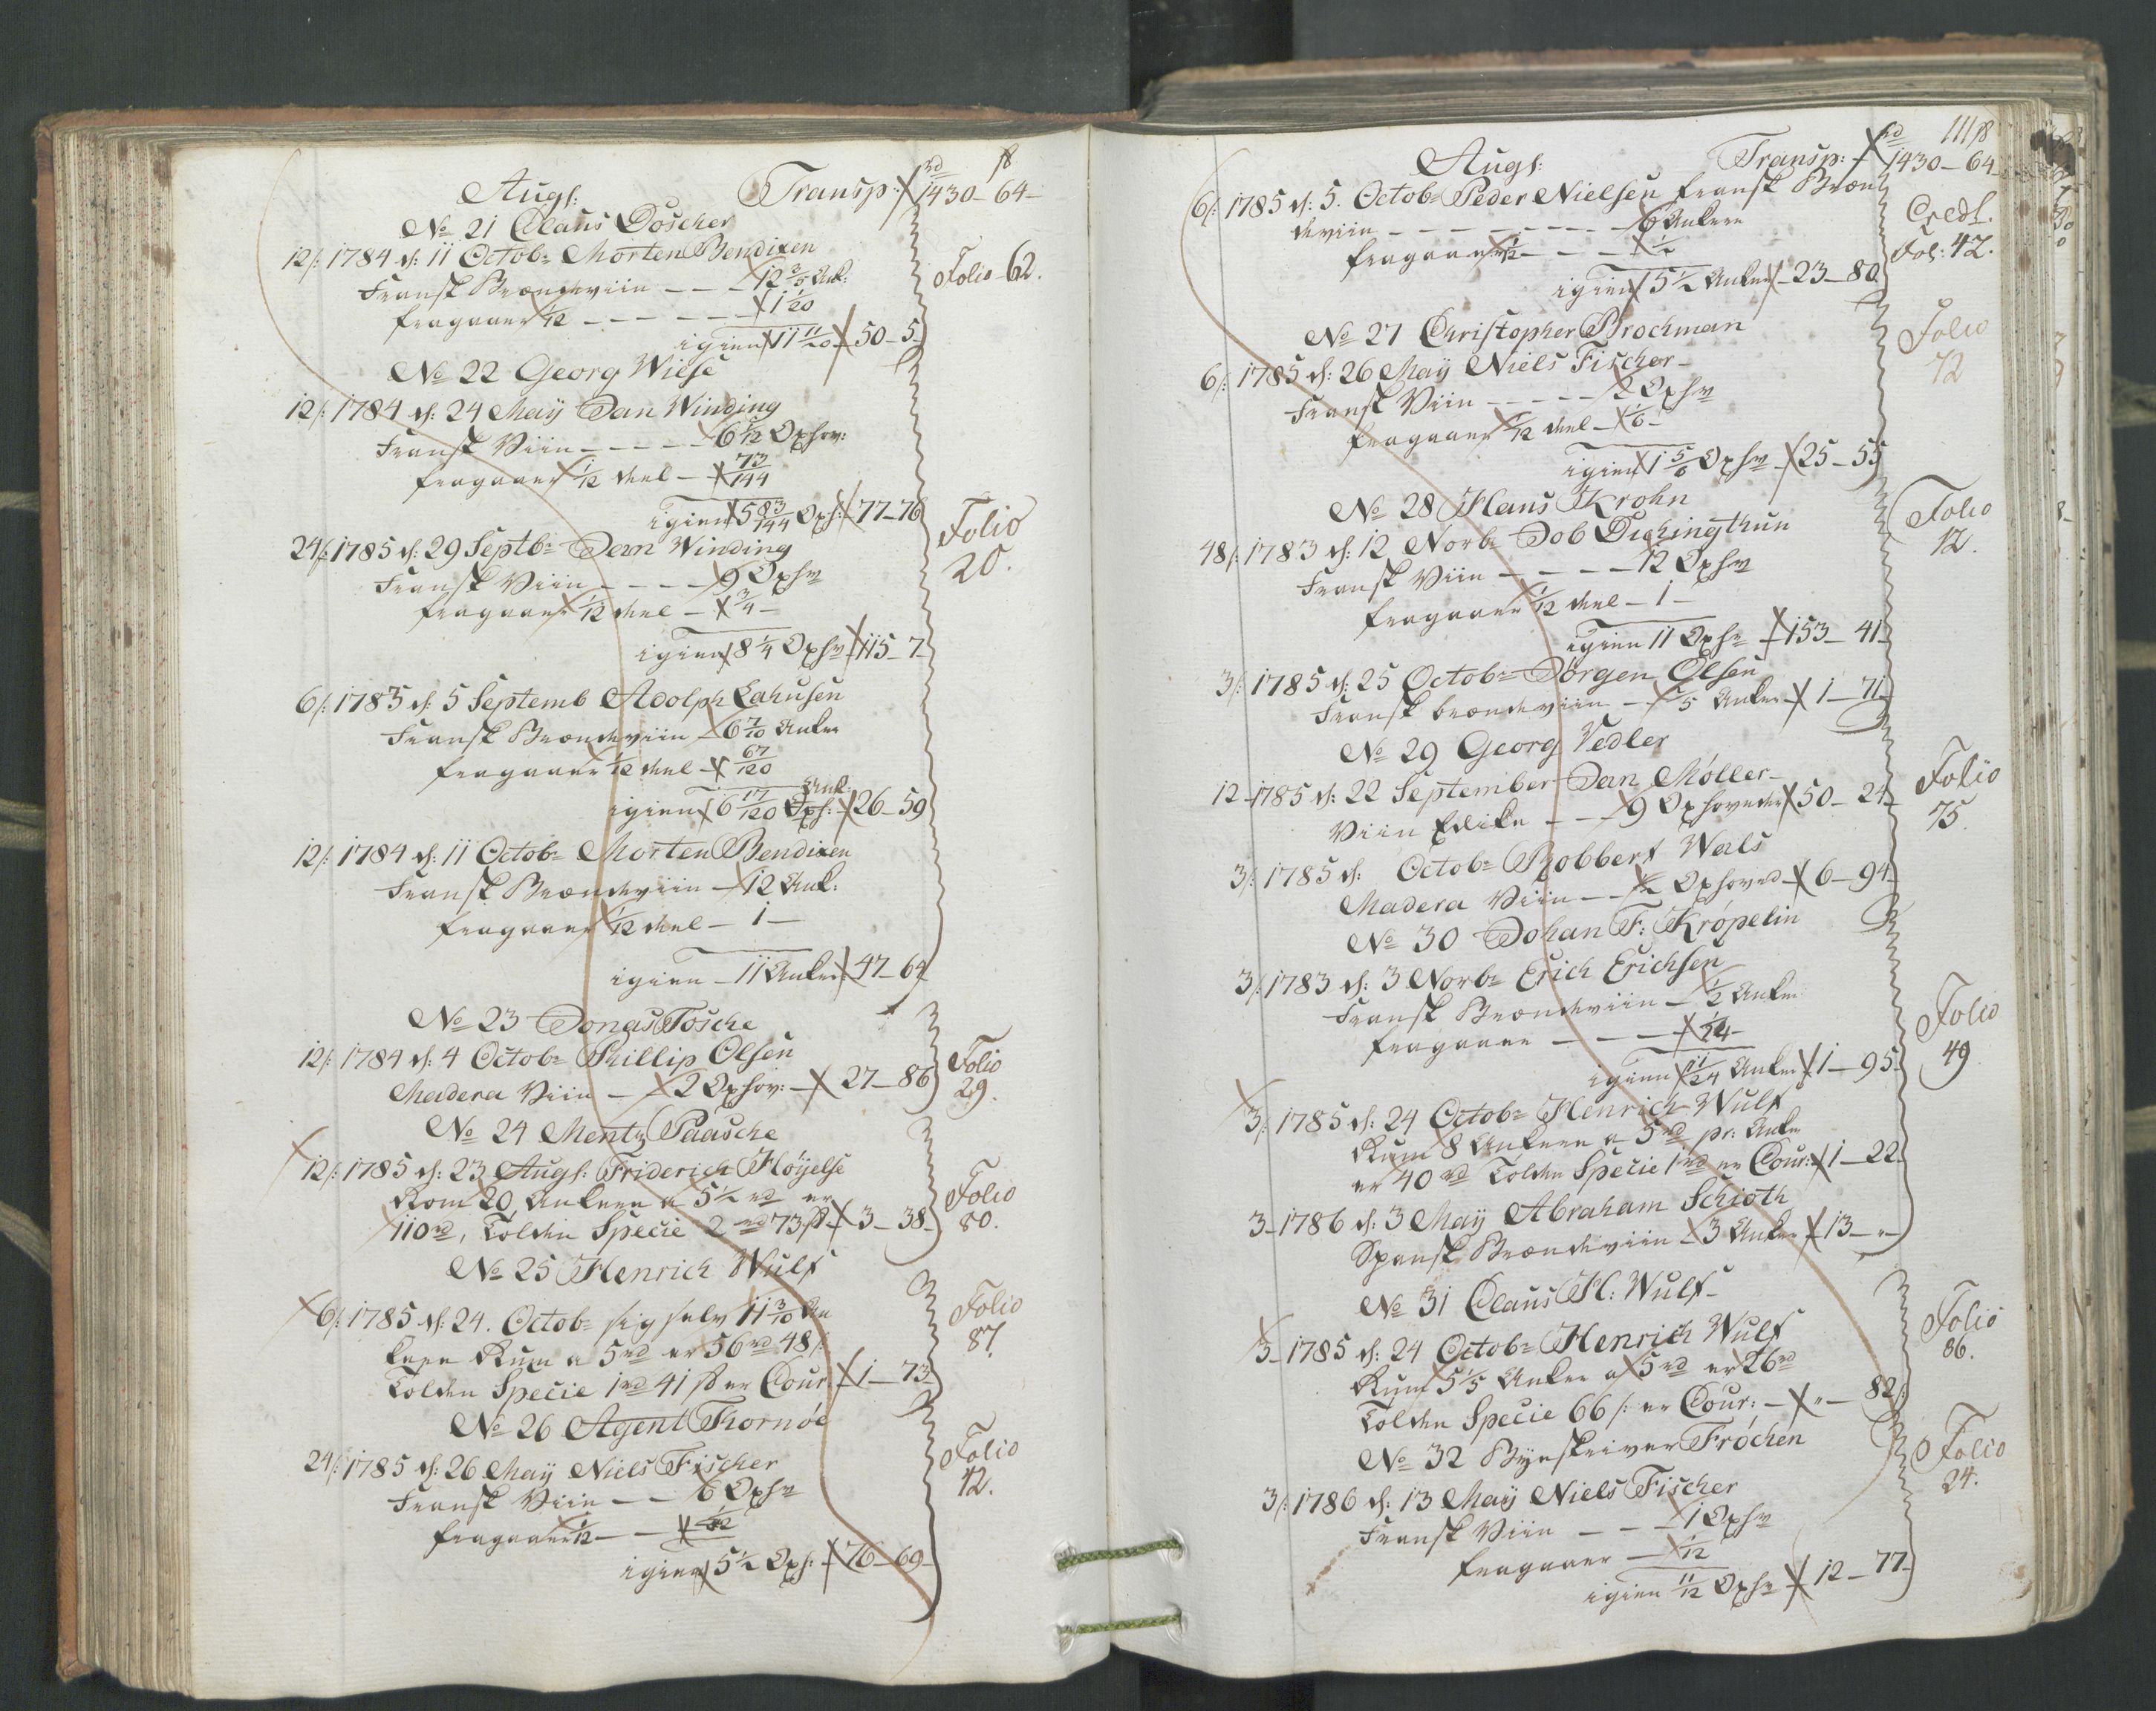 Augs: Transp: rd 1430 - 64 -
No 21 Claus Doscher
12/: 1784 d: 11 Octobr Morten Bendixen
Fransk Brændeviin - - - 12 3/5 Ank:
fragaaer 1/12 - - - - - - 1 1/20
igien 11 11/20 50 - 5 -
Folio 62.
No 22 Georg Wiese
12/: 1784 d: 24 Maÿ Dan Winding
Fransk Viin - - - - 6 1/12 Oxhov:
fragaaer 1/12 deel - 73/144
igien 5 83/144 Oxh: 77 - 76
Folio 20.
24/: 1785 d: 29 Septbr Dan Winding
Fransk Viin - - - - 9 Oxhv
fragaaer 1/12 deel - 3/4 -
igien 8 1/4 Oxhv 115 - 7 -
6/: 1785 d: 5 Septemb Adolph Lahusen
Fransk Brændeviin - 6 7/10 Anker
fragaaer 1/12 deel - 67/120
Ank:
igien 6 17/120 Oxh: 26 - 59
12/: 1784 d: 11 Octobr Morten Bendixen
Fransk Brændeviin - 12 Ank:
fragaaer 1/12 deel - 1 -
igien - 11 Anker 47 - 64
No 23 Jonas Tosche
12/: 1784 d: 4 Octobr Phillip Olsen
Madera Viin - - 2 Oxhov: - 27 - 86
Folio 29.
No 24 Mentz Paasche
12/: 1785 d: 23 Augs: Friderich Höÿelse
Rom 20, Ankere a 5 1/2 rd er
110 rd, Tolden Specie 2 rd 73 ß 3 - 38 -
Folio 80.
No 25 Henrich Wulf
6/: 1785 d: 24. Octobr sig selv 11 3/10 An
kere Rum a 5 rd er 56 rd 48/:
Tolden Specie 1 rd 41 ß er Cour: 1 - 73 -
Folio 87.
No 26 Agent Thornöe
24/: 1785 d: 26 Maÿ Niels Fischer
Fransk Viin - - 6 Oxhv
fragaaer 1/12 - - 1/2
igien 5 1/2 Oxh: 76 - 69 -
Folio 42.
111
Augs: Transp: rd 1430 - 64 -
6/: 1785 d: 5. Octobr Peder Nielsen Fransk Bræn
deviin - - - - - - - - 6 Ankere
fragaaer 1/12 - - - 1/2
igien 5 1/2 Anker - 23 - 80
Credt.
Fol: 42.
No 27 Christopher Brochman
6/: 1785 d: 26 Maÿ Niels Fischer -
Fransk Viin - - - - - 2 Oxhv
fragaaer 1/12 deel - 1/6 -
igien 1 5/6 Oxhv 25 - 55
Folio 42
No 28 Hans Krohn
48/: 1783 d: 12 Novbr Job Dichingthun
Fransk Viin - - - - - 12 Oxhv
fragaaer 1/12 deel - 1 -
igien 11 Oxhv 153 - 41 -
Folio 12.
3/: 1785 d: 25 Octobr Jörgen Olsen
Fransk brændeviin - 2/5 Anker 1 - 71 -
No 29 Georg Vedler
12 - 1785 d: 22 September Dan Möller -
Viin Edike - - 9 Oxhoveder 50 - 24 -
Folio 75.
3/: 1785 d: Octobr Robbert Wals
Madera Viin - - 1/2 Oxhoved 6 - 94 -
No 30 Johan F: Kröpelin
3/: 1783 d: 3 Novbr Erich Erichsen
Fransk Brændeviin - 1/2 Anker
fragaaer - - - - 1/24 -
igien 11/24 Anker 1 - 95 -
Folio 49
3/: 1785 d: 24 Octobr Henrich Wulf
Rum 8 Ankere a 5 rd pr: Anker
er 40 rd Tolden Specie 1 rd er Cour: 1 - 22 -
3 - 1786 d: 3 Maÿ Abraham Schioth
Spansk Brændeviin - 3 Anker 13 - " -
No 31 Claus H: Wulf -
3 - 1785 d: 24 Octobr Henrich Wulf
Rum 5 1/5 Anker a 5 rd er 26 rd
Tolden Specie 66/: er Cour: - " - 82/:
Folio 86.
No 32 Byeskriver Fröchen
3/: 1786 d: 13 Maÿ Niels Fischer
Fransk Viin - - - 1 Oxhv
fragaaer - 1/12
igien 11/12 Oxhv 12 - 77 -
Folio 24.